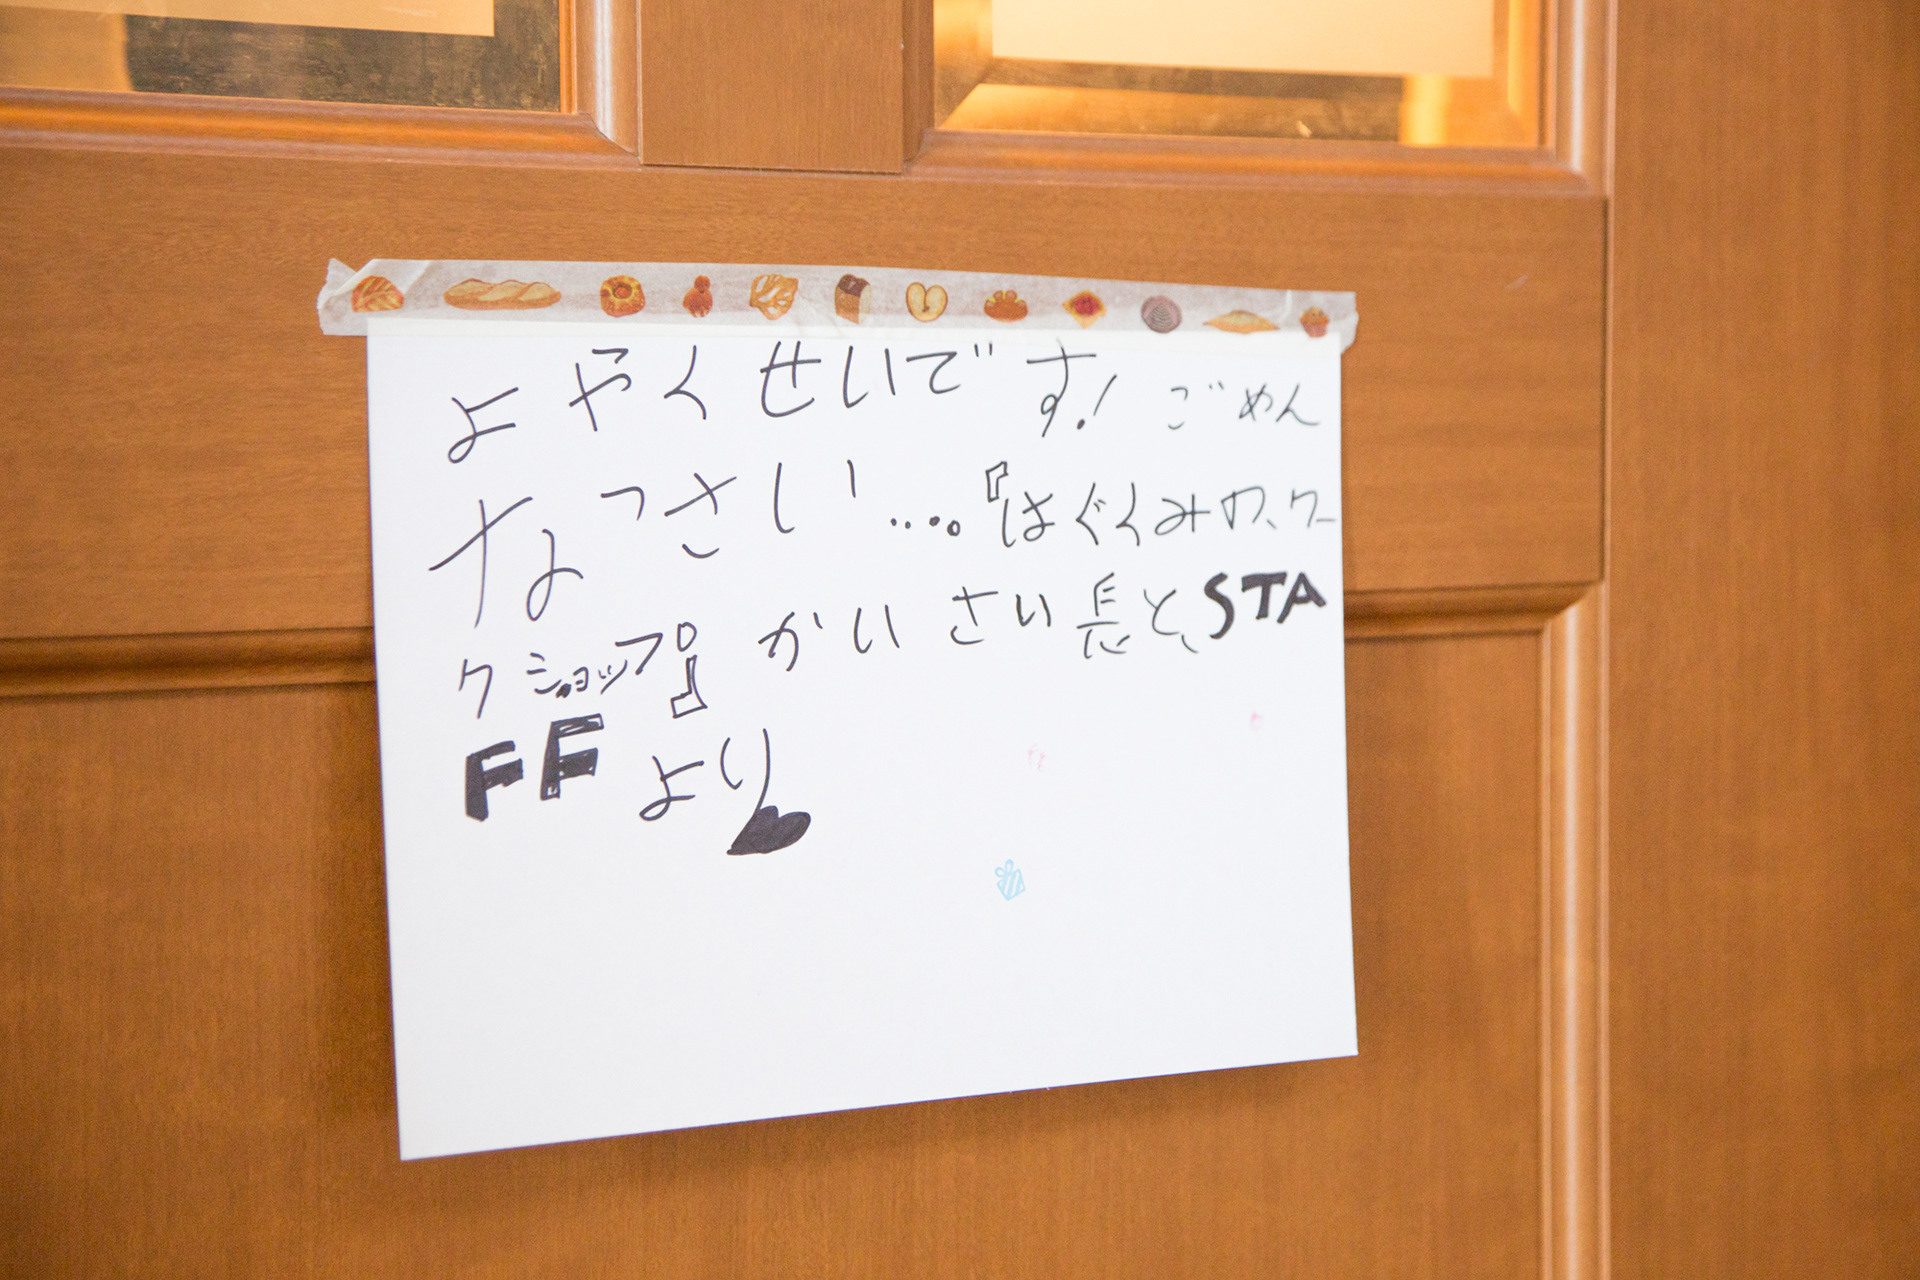 よやくせいです! ごめん
なっさい...。『はぐくみの、ワー
クショップ』かいさい長と、STA
FFより